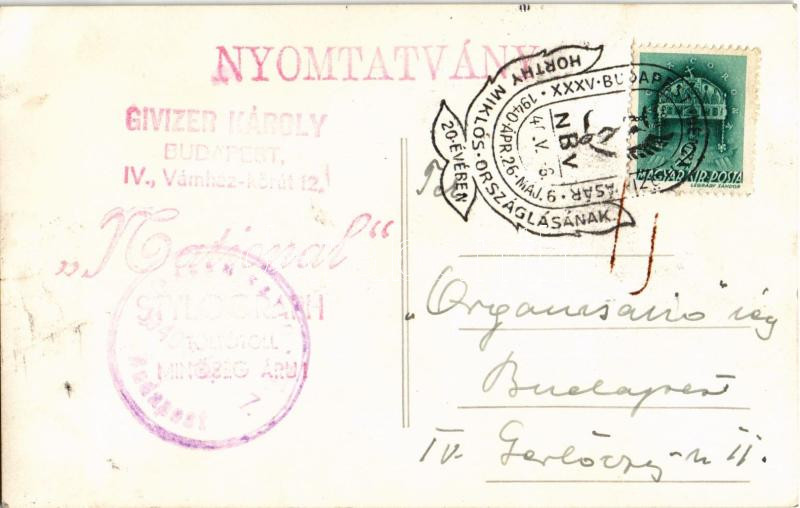 NYOMTATVÁNY
GIVIZER KÁROLY
BUDAPEST,
IV., Vámház-körút 12.
„National“
STYLOGRAPH
TÖLTŐTOLL
MINŐSÉG ÁRU
Budapest
HORTHY MIKLÓS·ORSZÁGLÁSÁNAK
20-ÉVÉBEN
XXXV·BUDAP
1940 ÁPR. 26-MÁJ. 9
NBV
MAGYAR KIR. POSTA
LÉGRÁDY SÁNDOR
Budapest
IV. Gerlóczy-u 11.